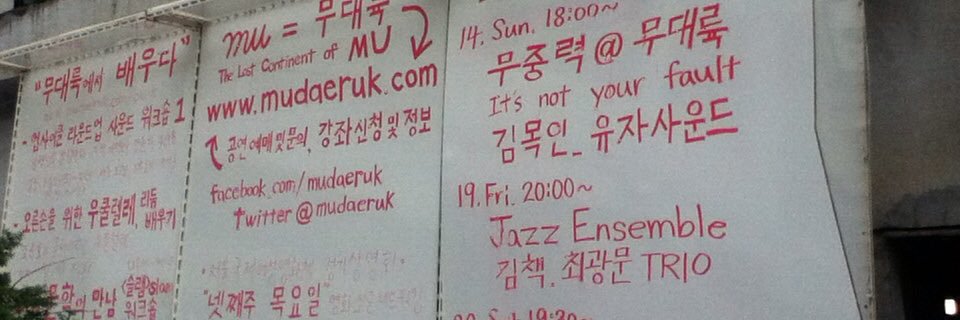 "무대륙에서 배우다"
- 업사이클 라운드업 사운드 워크숍 1
오른손을 위한 우쿨렐레, 리듬 배우기
의 만남 <슬램> slam 워크숍
mu = 무대륙
The Lost Continent of MU
www.mudaeruk.com
공연예매및문의, 강좌신청및정보
facebook.com/mudaeruk
twitter@mudaeruk
"넷째주 목요일"
14. Sun. 18:00~
무중력 @ 무대륙
It's not your fault
김목인_유자사운드
19. Fri. 20:00~
Jazz Ensemble
김책. 최광문 TRIO